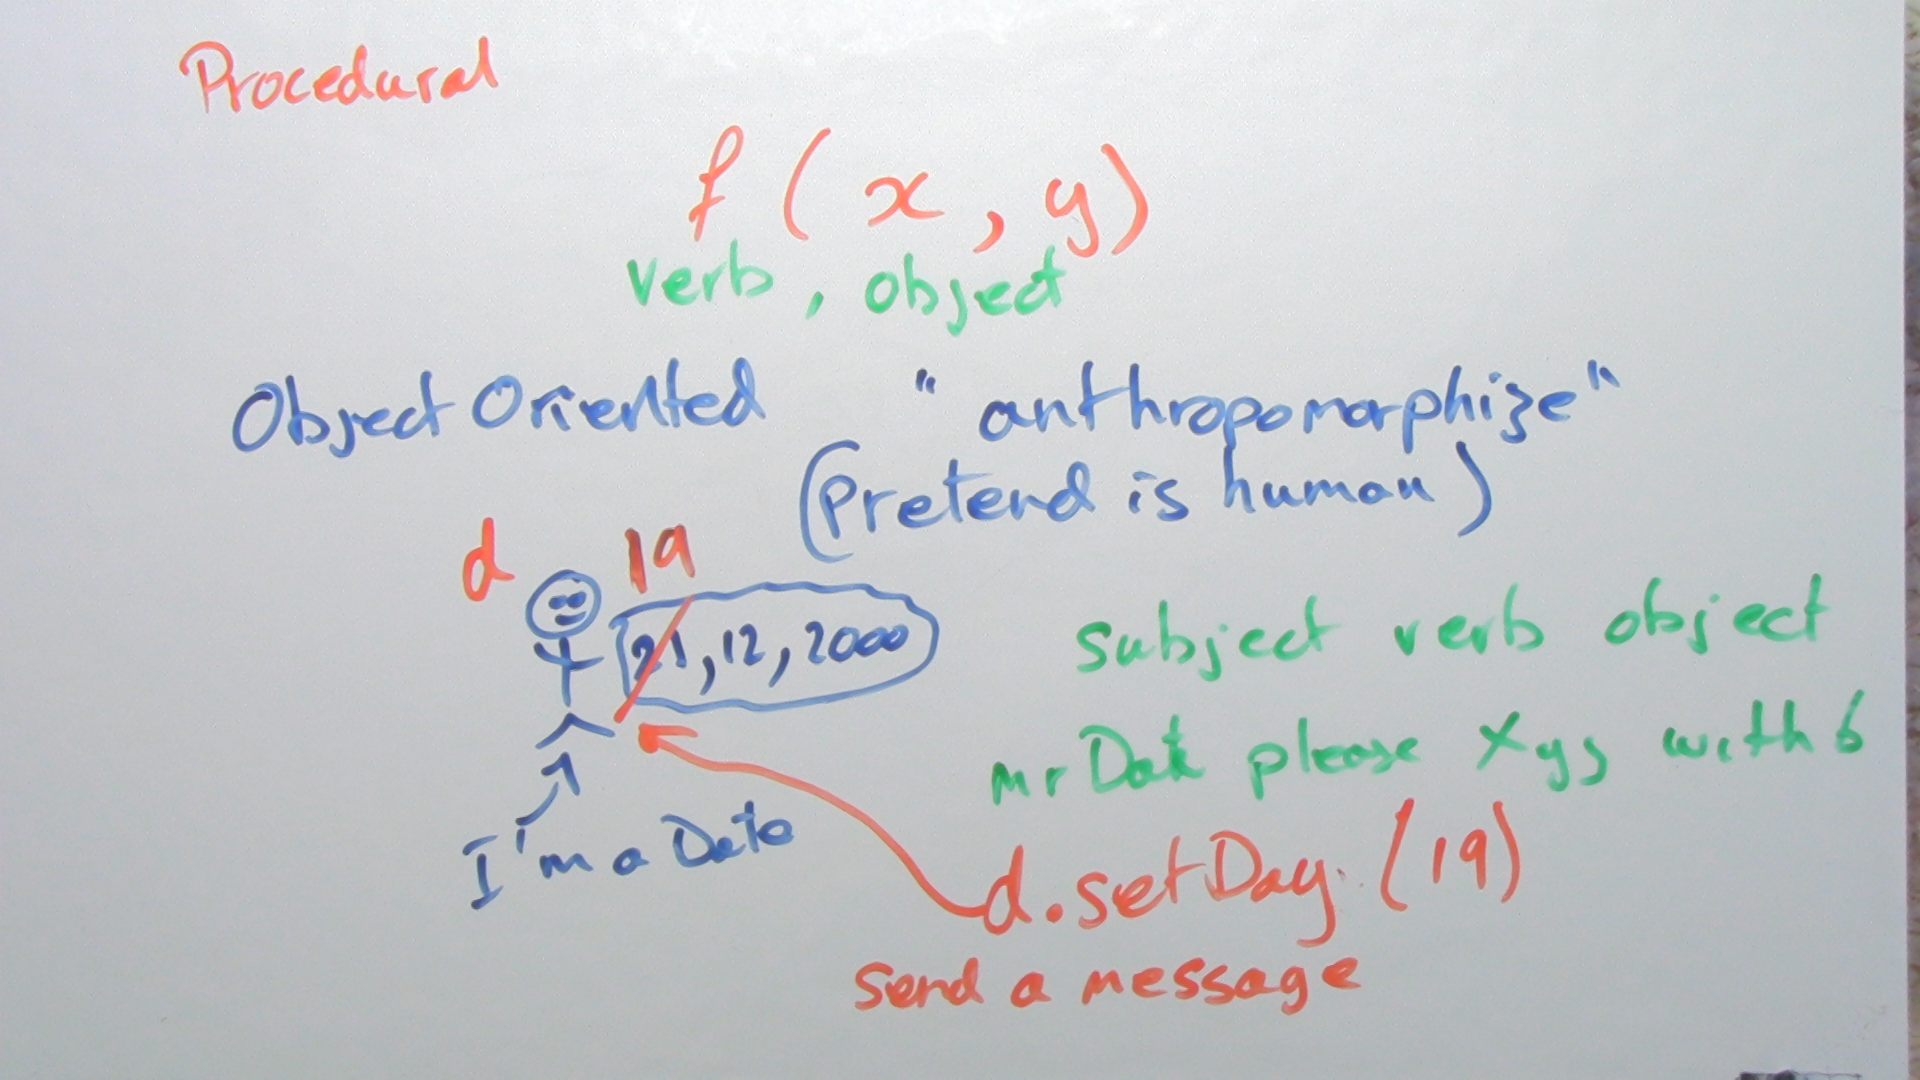 Procedural
f ( x , y )
verb , object
Object Oriented "anthropomorphize"
(Pretend is human)
d 19
21, 12, 2000
subject verb object
mr Date please Xyz with 6
I'm a Date
d.setDay (19)
Send a message